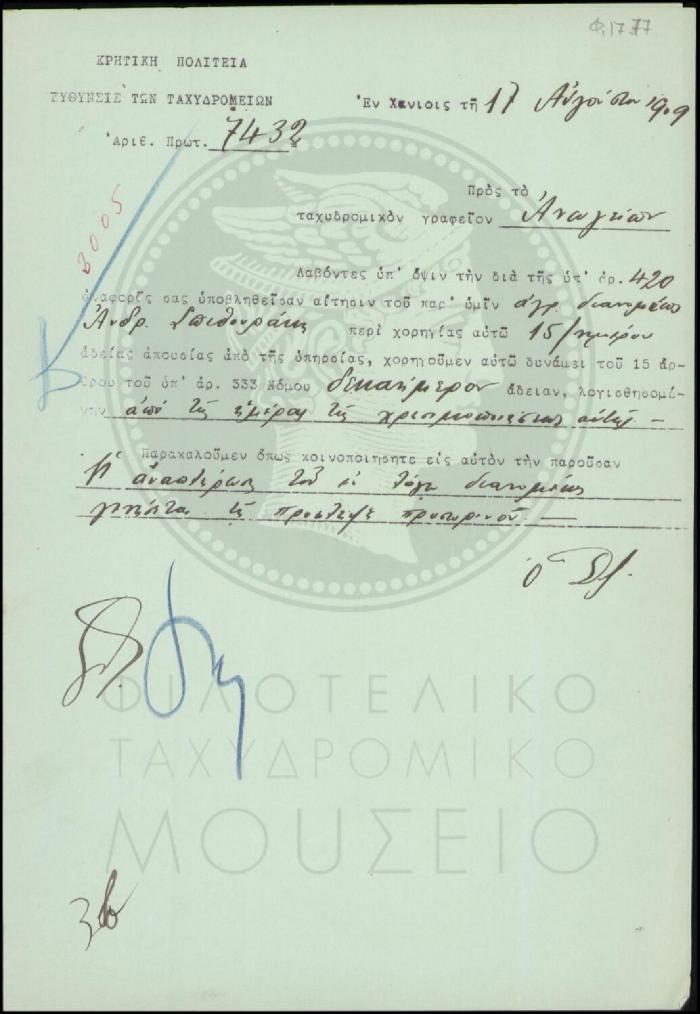 Φ.17.77
ΚΡΗΤΙΚΗ ΠΟΛΙΤΕΙΑ
ΕΥΘΥΝΣΙΣ ΤΩΝ ΤΑΧΥΔΡΟΜΕΙΩΝ
Ἐν Χανίοις τῇ 17 Αὐγούστου 1909
Ἀριθ. Πρωτ. 7432
3005
Πρὸς τὸ
ταχυδρομικὸν γραφεῖον Ἀνωγείων
Λαβόντες ὑπ' ὄψιν τὴν διὰ τῆς ὑπ' ἀρ. 420
ἀναφορᾶς σας ὑποβληθεῖσαν αἴτησιν τοῦ παρ' ὑμῖν ἀγρ. διανομέως
Ἀνδρ. Σπιθουράκη περὶ χορηγίας αὐτῷ 15/ημέρου
ἀδείας ἀπουσίας ἀπὸ τῆς ὑπηρσίας, χορηγοῦμεν αὐτῷ δυνάμει τοῦ 15 ἄρ-
θρου τοῦ ὑπ' ἀρ. 333 Νόμου δεκαήμερον ἄδειαν, λογισθησομέ-
νην ἀπὸ τῆς ἡμέρας τῆς χρησιμοποιήσεως αὐτῆς
Παρακαλοῦμεν ὅπως κοινοποιήσητε εἰς αὐτὸν τὴν παροῦσαν
Ἡ ἀναπλήρωσις τοῦ ἐν λόγῳ διανομέως
προσωρινοῦ.
ΦΙΛΟΤΕΛΙΚΟ
ΤΑΧΥΔΡΟΜΙΚΟ
ΜΟΥΣΕΙΟ